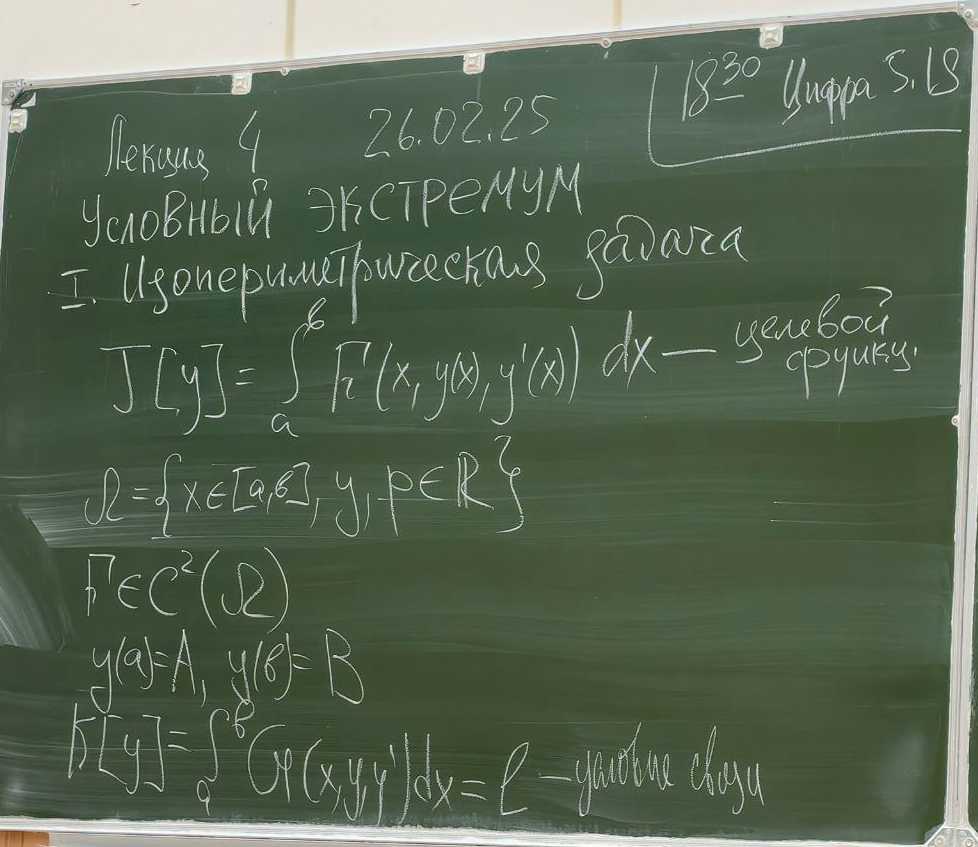 18³⁰ Цифра 5.18
Лекция 4 26.02.25
Условный экстремум
I. Изопериметрическая задача
J[y] = ∫ₐᵇ F(x, y(x), y'(x)) dx — целевой функц.
Ω = {x∈[a,b], y, p∈ℝ}
F∈C²(Ω)
y(a)=A, y(b)=B
K[y] = ∫ₐᵇ G(x,y,y')dx = l – условие связи